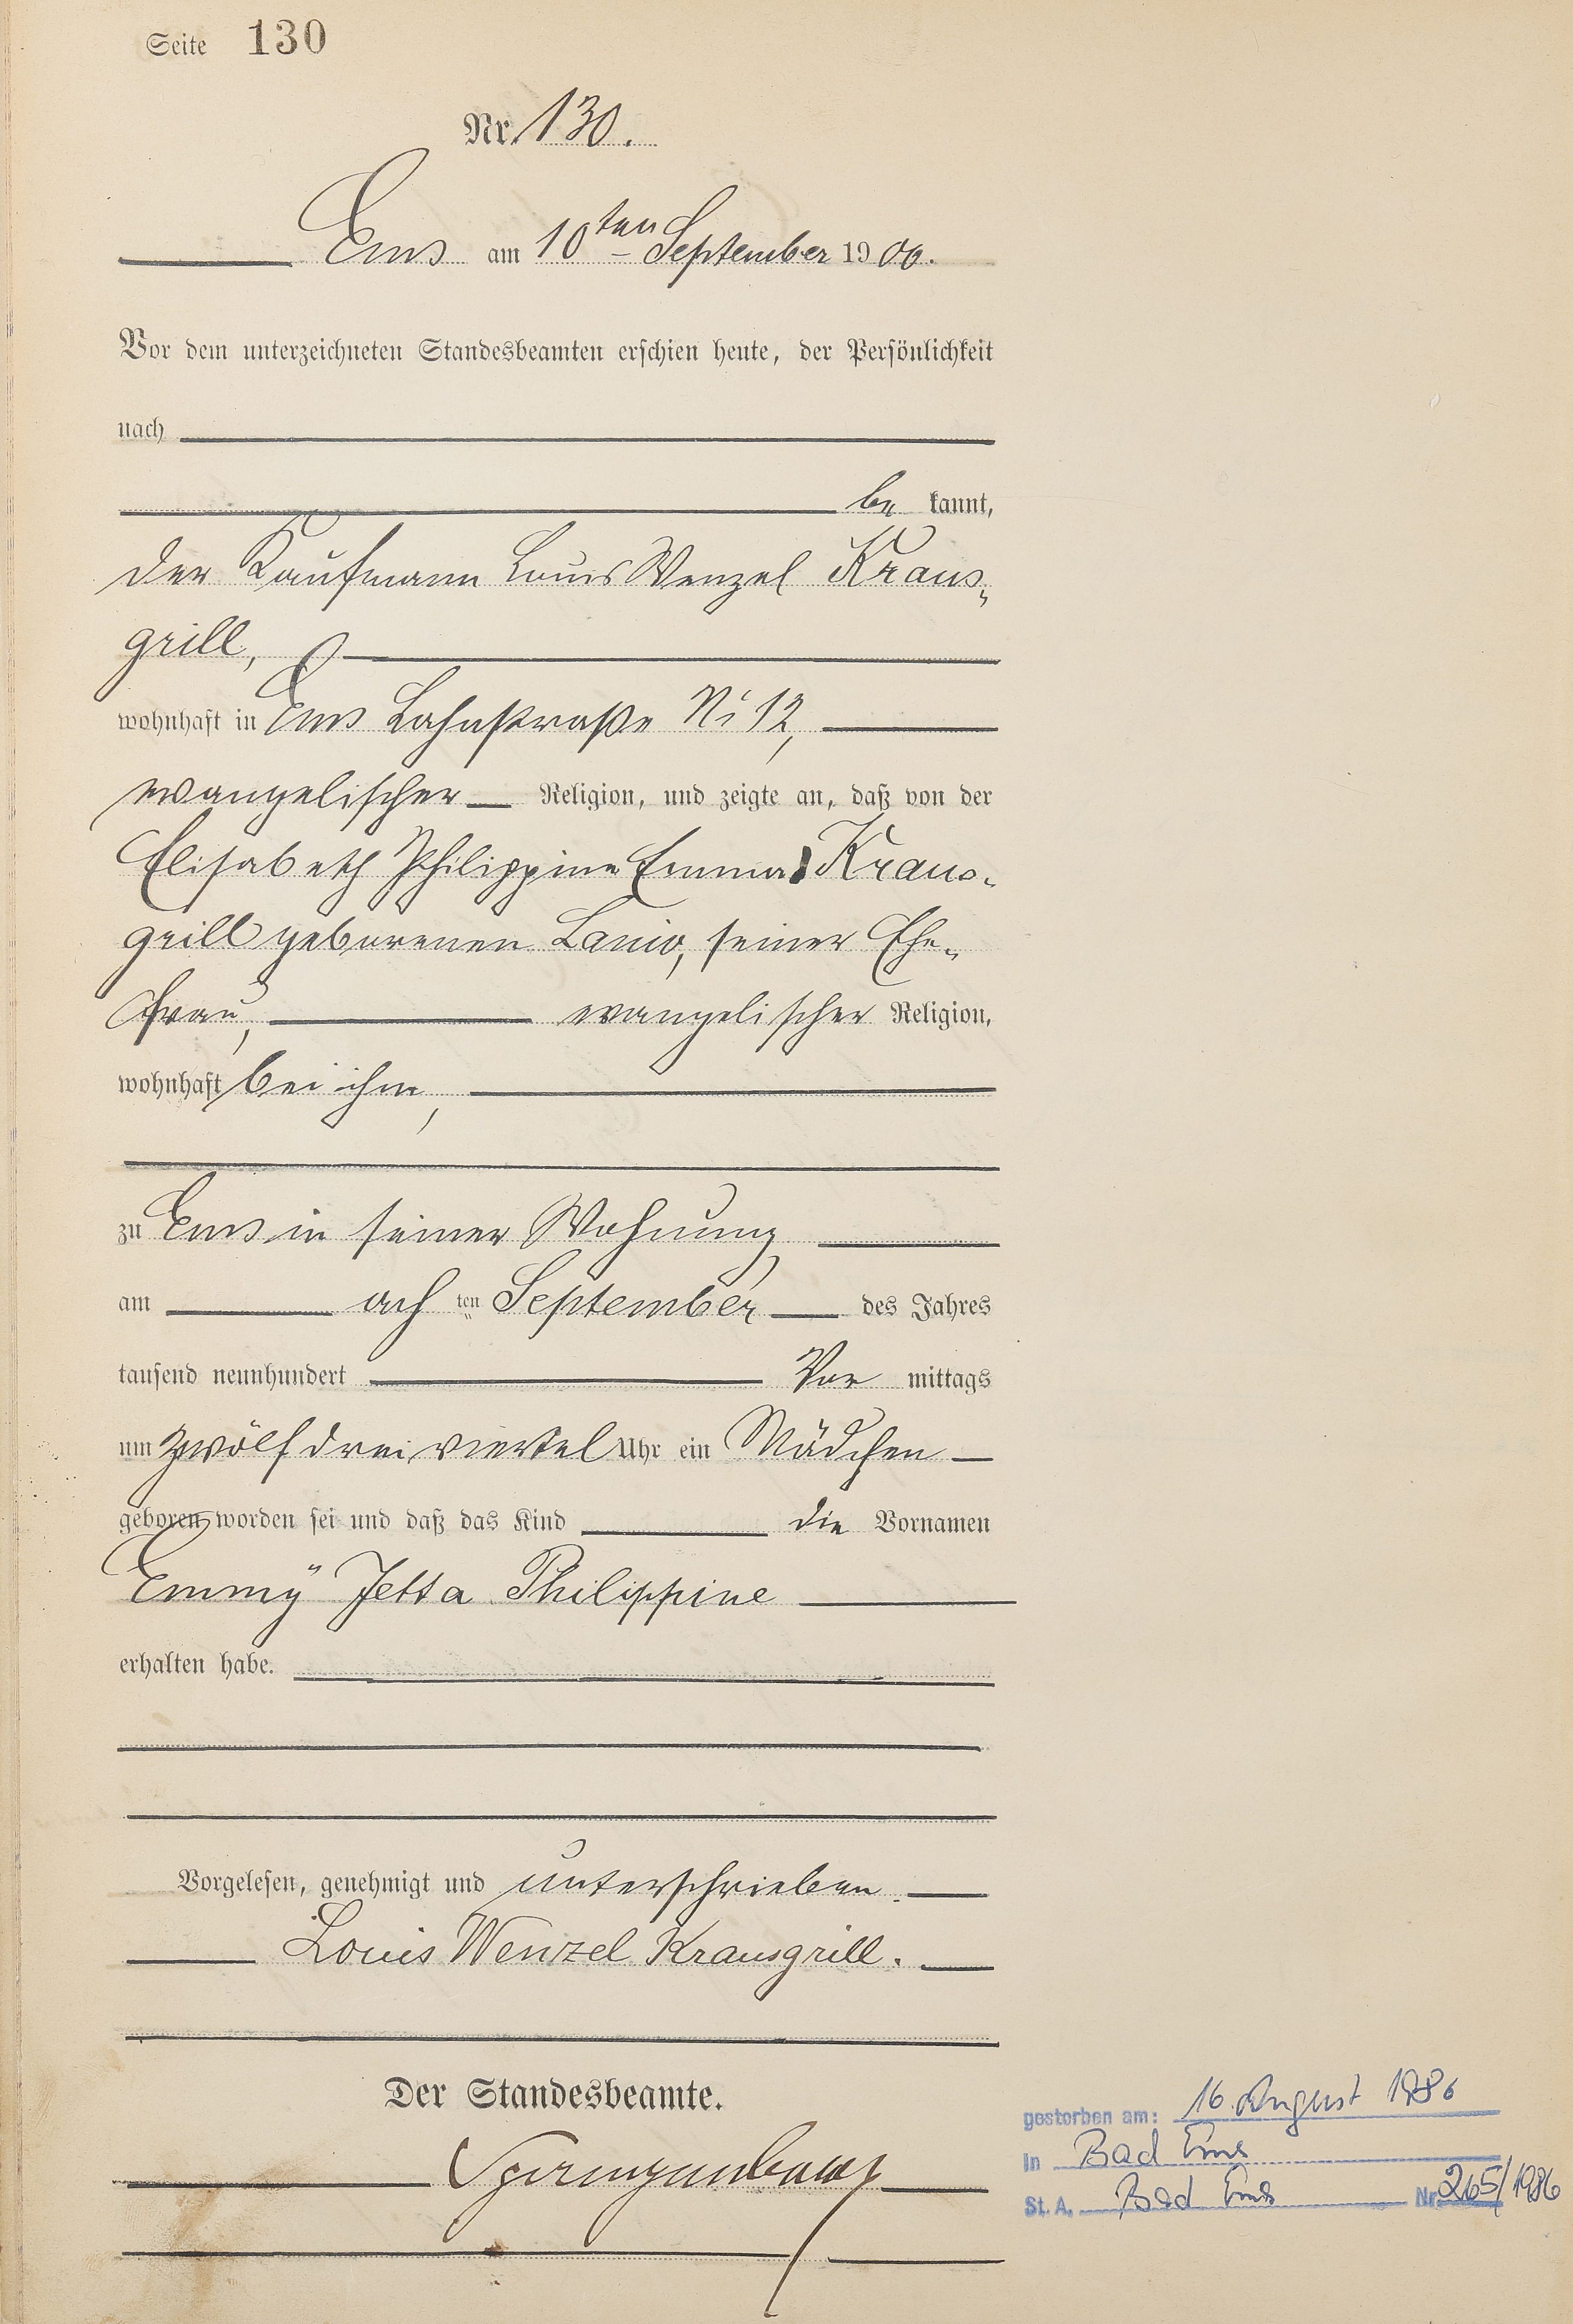 Seite 130
Nr. 130.
Ems am 10ten September 1900.
Vor dem unterzeichneten Standesbeamten erschien heute, der Persönlichkeit
nach
be kannt,
der Kaufmann Louis Wenzel Kraus-
grill,
wohnhaft in Ems Lahnstraße No 12,
evangelischer Religion, und zeigte an, daß von der
Elisabeth Philippine Emma Kraus-
grill geborenen Lanio, seiner Ehe-
frau, evangelischer Religion,
wohnhaft bei ihm,
zu Ems in seiner Wohnung
am achten September des Jahres
tausend neunhundert Vor mittags
um zwölf drei viertel Uhr ein Mädchen
geboren worden sei und daß das Kind die Vornamen
Emmÿ Jetta Philippine
erhalten habe.
Vorgelesen, genehmigt und unterschrieben.
Louis Wenzel Krausgrill.
Der Standesbeamte.
gestorben am: 16. August 1986
in Bad Ems
St. A. Bad Ems Nr. 265/1986